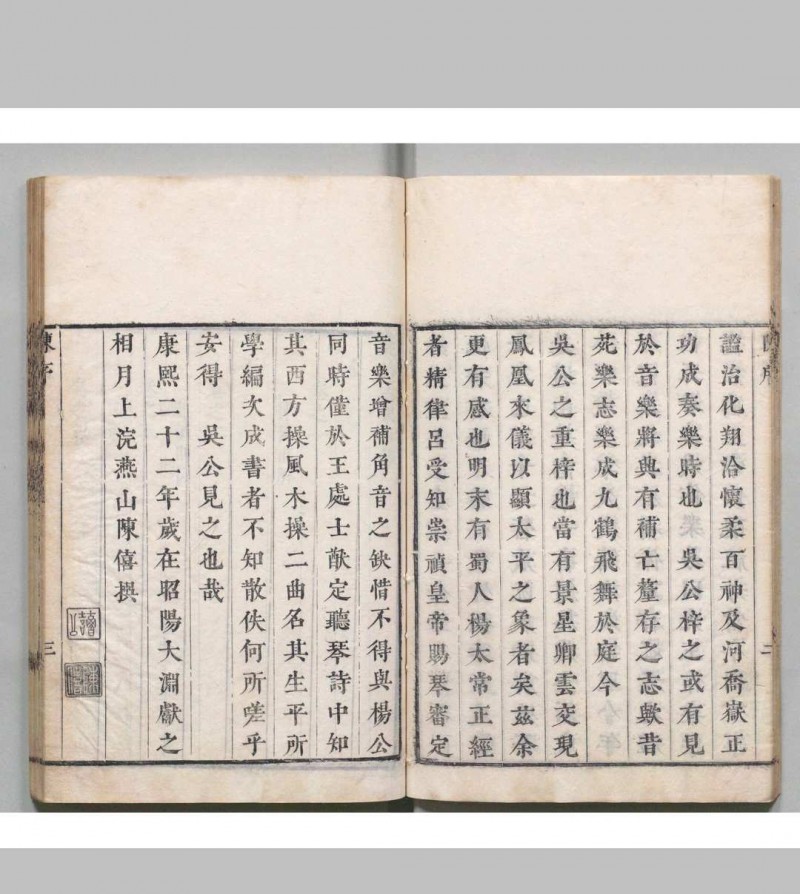 謐治化翔洽懷柔百神及河喬嶽正
功成奏樂時也 吳公梓之或有見
於音樂將典有補亡釐存之志歟昔
苑樂志樂成九鶴飛舞於庭今
吳公之重梓也當有景星卿雲交現
鳳凰來儀以顯太平之象者矣茲余
更有感也明末有蜀人楊太常正經
者精律呂受知崇禎皇帝賜琴審定
二
音樂增補角音之缺惜不得與楊公
同時僅於王處士猷定聽琴詩中知
其西方操風木操二曲名其生平所
學編次成書者不知散佚何所嗟乎
安得 吳公見之也哉
康熙二十二年歲在昭陽大淵獻之
相月上浣燕山陳僖撰
陳序
三